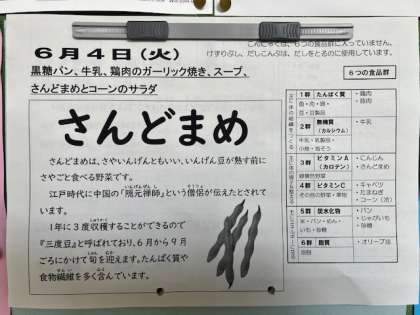 こんにゃくは、もつの食品群に入っていません。
けずりぶし、だしこんぶは、だしをとるのに使用しています。
6月4日(火)
黒糖パン、牛乳、鶏肉のガーリック焼き、スープ、
さんどまめとコーンのサラダ
さんどまめ
さんどまめは、さやいんげんともいい、いんげん豆が熟す前に
さやごと食べる野菜です。
江戸時代に中国の「隠元禅師」という僧侶が伝えたとされて
います。
1年に3度収穫することができるので
『三度豆』と呼ばれており、6月から9月
ごろにかけて旬を迎えます。たんぱく質や
食物繊維を多く含んでいます。
6つの食品群
1群 たんぱく質
魚・肉・卵・
豆・豆製品
・鶏肉
・豚肉
2群 無機質
(カルシウム)
牛乳・乳製品・
小魚・海そう
・牛乳
3群 ビタミンA
(カロテン)
緑黄色野菜
・にんじん
・さんどまめ
4群 ビタミンC
その他の野菜・果物
・キャベツ
・たまねぎ
・コーン(冷)
5群 炭水化物
米・パン・めん・
いも・砂糖
・パン
・じゃがいも
・砂糖
6群 脂質
油脂
・オリーブ油